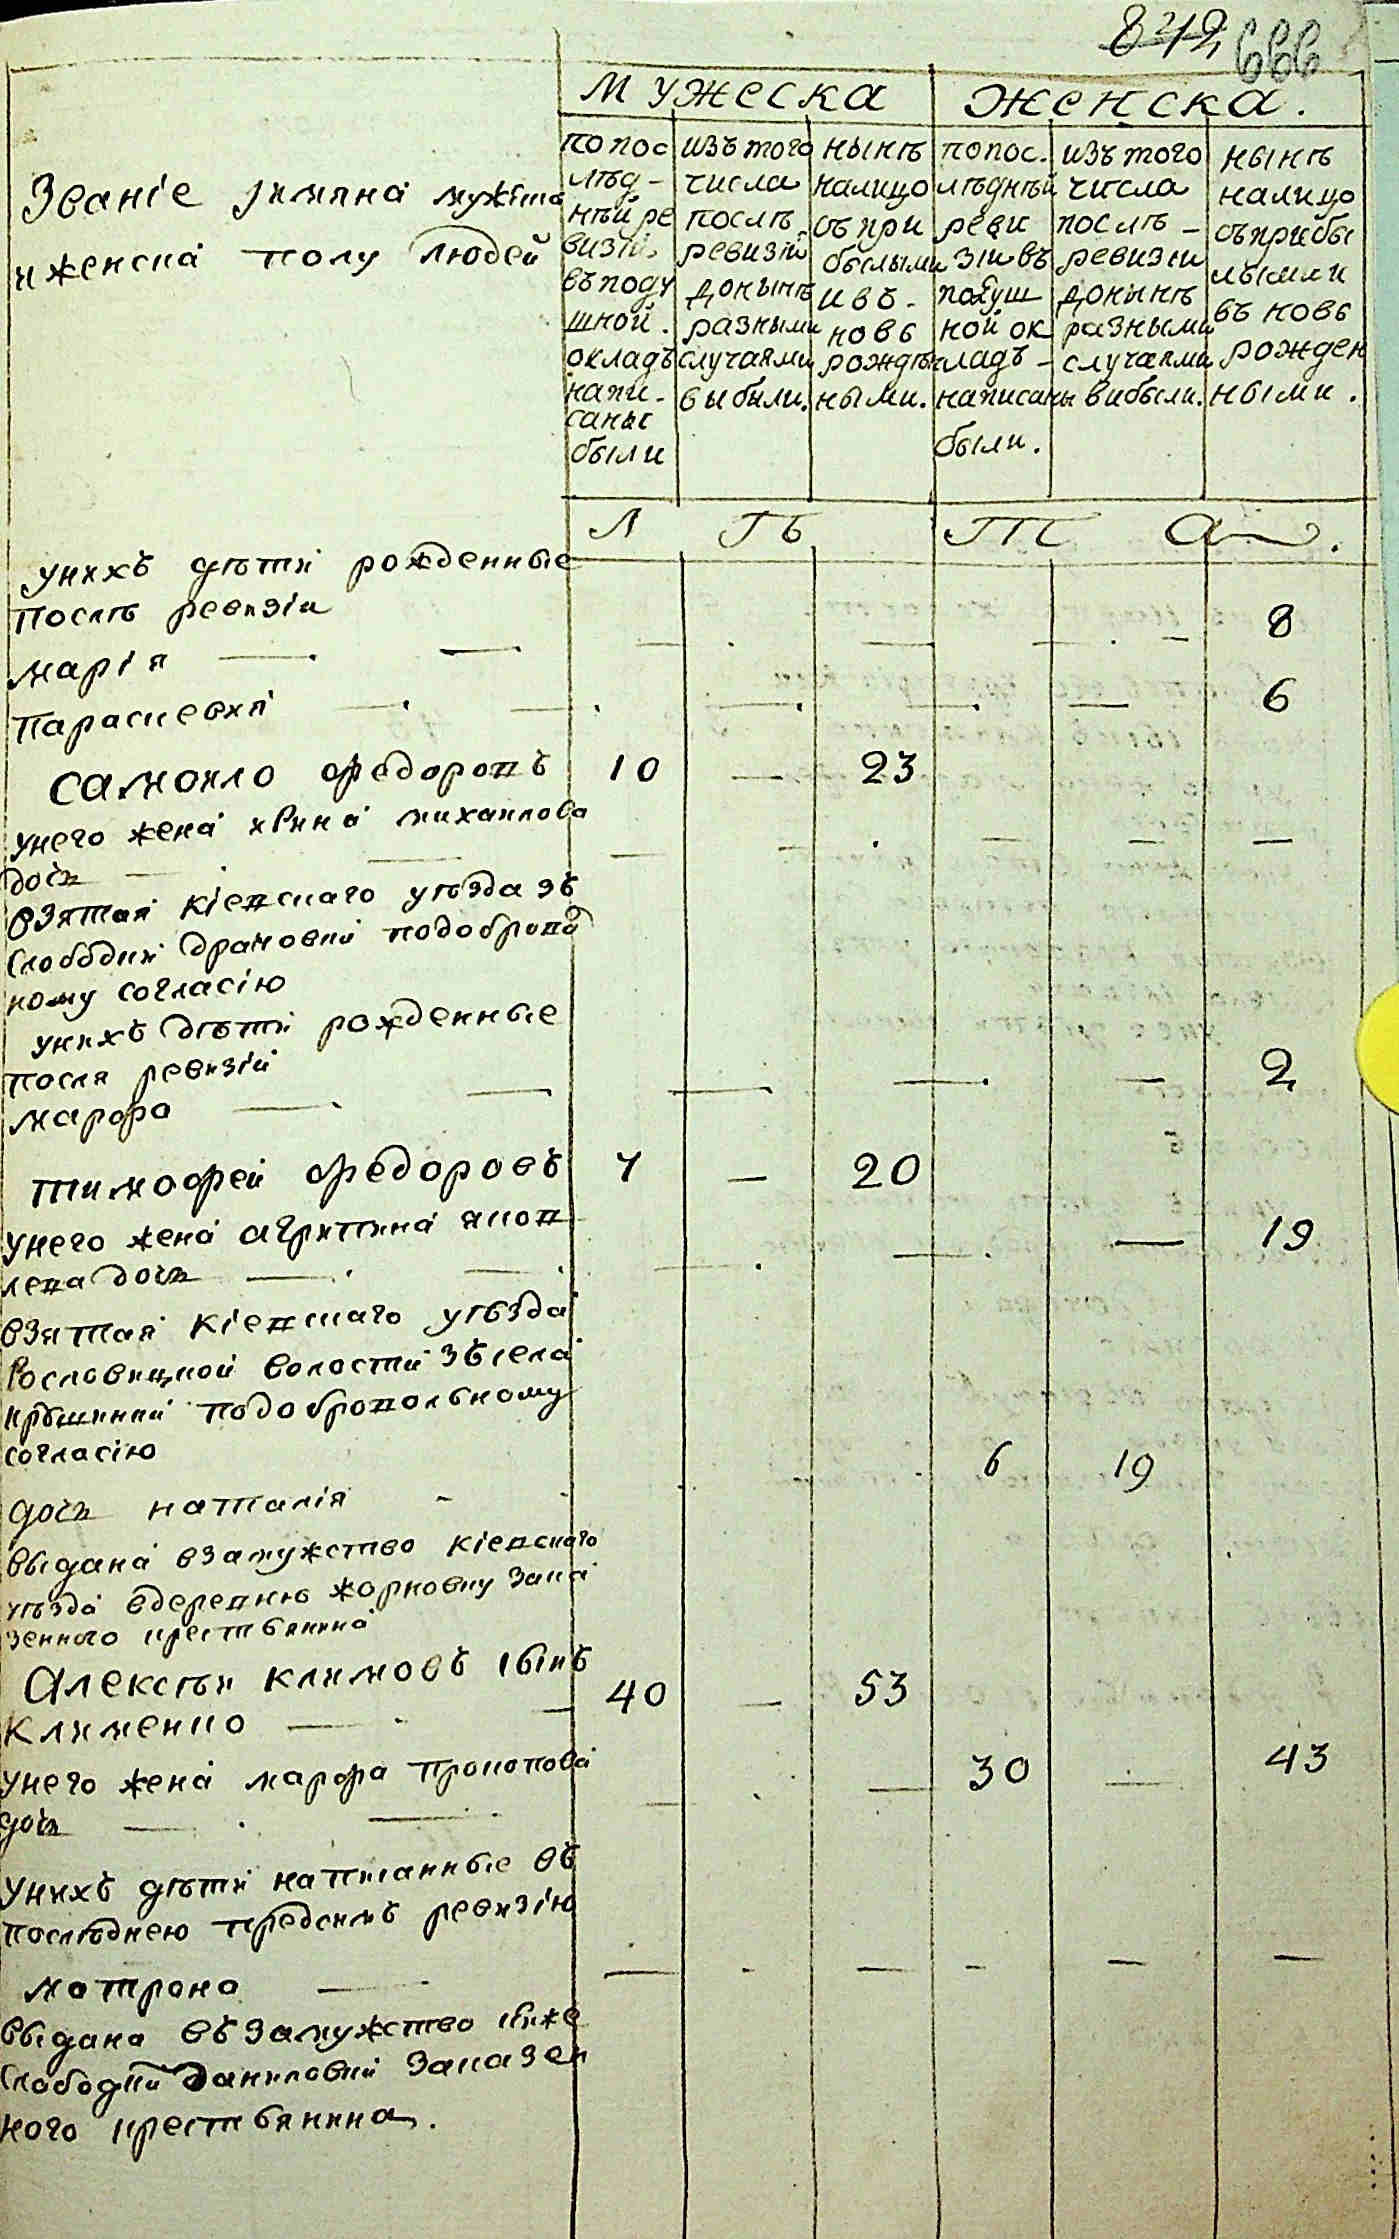 842 666
Мужеска Женска.
Званіе имяна мужеска
и женска полу людей
по пос
лѣд-
нѣй ре
визіи
въ поду
шной.
окладъ
напи-
саны
были
изъ того
числа
послѣ
ревизіи
донынѣ
разными
случаями
выбыли.
нынѣ
налицо
съ при
былыми
и въ-
новь
рожден
ными.
по пос.
лѣднѣй
реви
зіи въ
подуш
ной ок
ладъ-
написаны
были.
изъ того
числа
послѣ-
ревизіи
донынѣ
разными
случаями
выбыли.
нынѣ
налицо
съ прибы
лыми и
въ новь
рожден
ными.
Л ѣ т а.
у нихъ дѣти рожденные
послѣ ревизіи
марія — — 8
параскевия — — 6
самоило федоровъ 10 — 23
у него жена михаилова
дочь —
взятая кіевскаго уѣзда зъ
слободки драновки по доброво
ному согласію
у нихъ дѣти рожденные
посля ревизіи
марфа — — 2
тимофеи федоровъ 7 — 20
у него жена агрипина яков
лева дочь — — 19
взятая кіевскаго уѣзда
волости зъ села
по добровольному
согласію
дочь наталія - 6 19
выдана взамужство кіевского
уѣзда вдеревню жорновку за ка
зенного крестьянина
Алексѣи климовъ сынъ
клименко — 40 — 53
у него жена марфа прокопова
дочь — — 30 — 43
у нихъ дѣти написанные въ
послѣднею предсимъ ревизію
мотрона —
выдана въ замужство
слободки даниловки за казен
ного крестьянина.